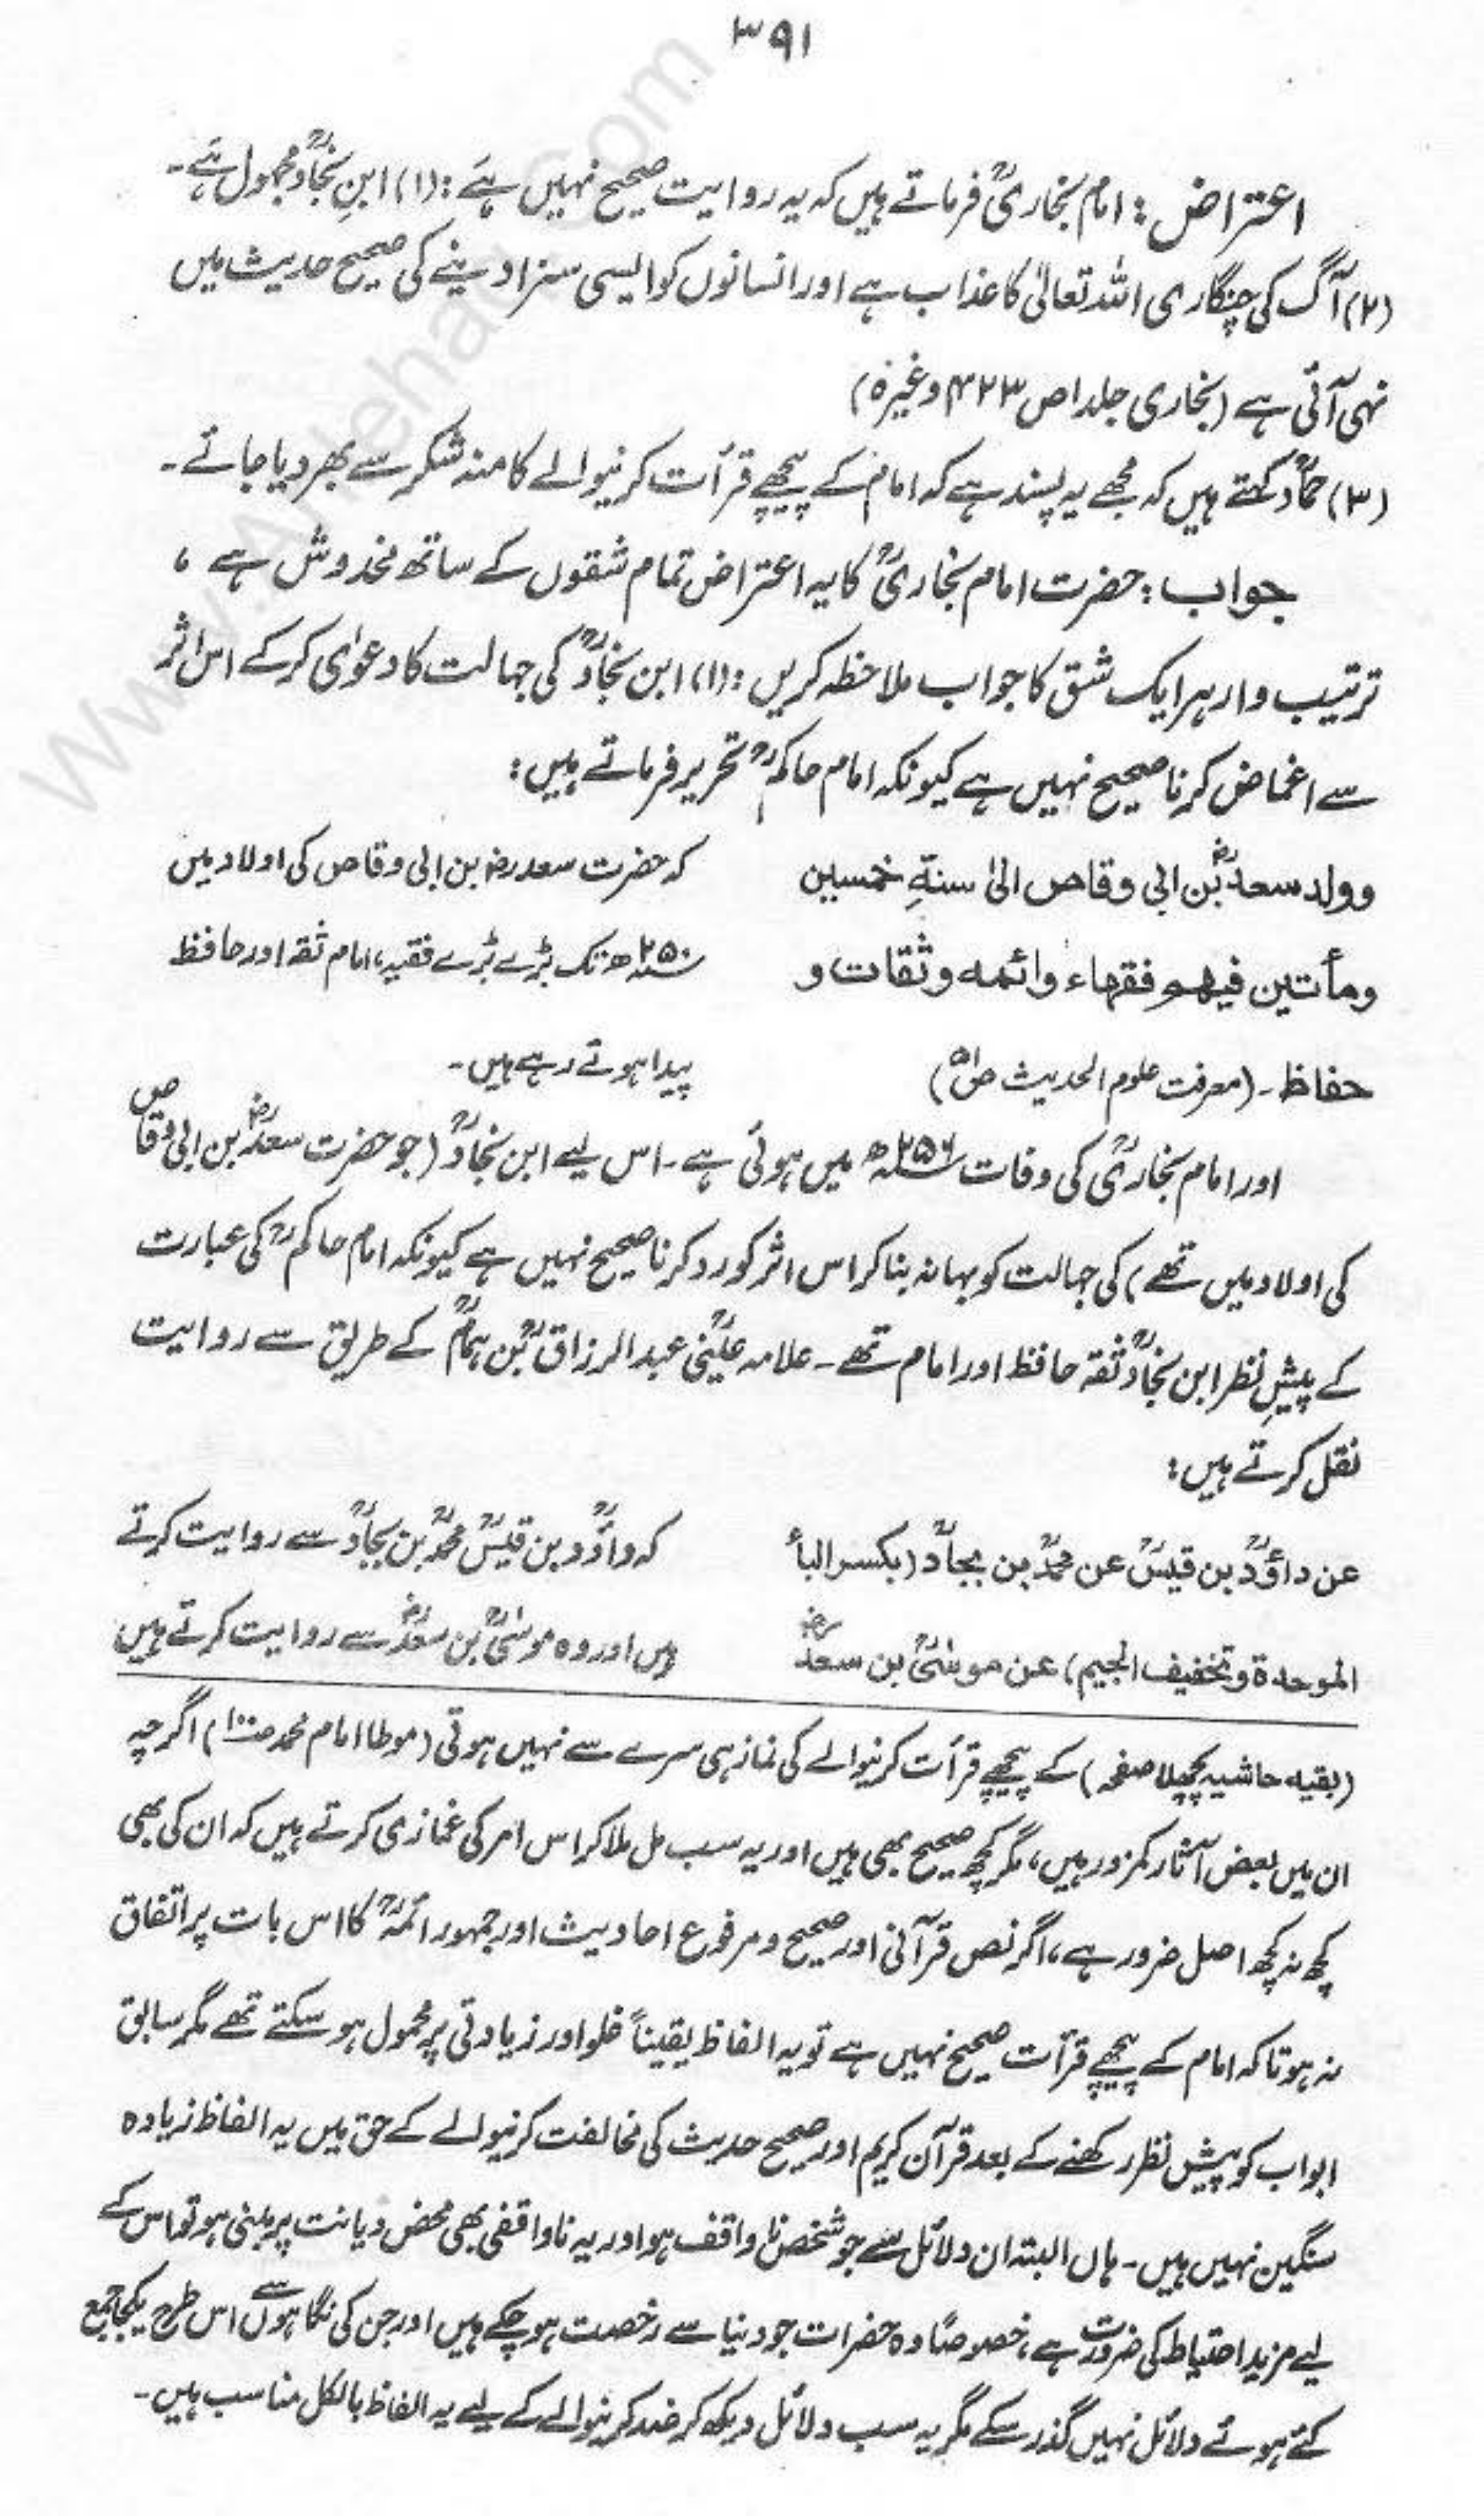 ۳۹۱
اعتراض : امام بخاریؒ فرماتے ہیں کہ یہ روایت صحیح نہیں ہے : (۱) ابنِ نجادؒ مجہول ہے۔
(۲) آگ کی چنگاری اللہ تعالیٰ کا عذاب ہے اور انسانوں کو ایسی سزا دینے کی صحیح حدیث میں
نہی آئی ہے (بخاری جلد ۱ ص ۴۲۳ وغیرہ)
(۳) حمادؒ کہتے ہیں کہ مجھے یہ پسند ہے کہ امام کے پیچھے قرأت کرنیوالے کا منہ شکر سے بھر دیا جائے۔
جواب : حضرت امام بخاریؒ کا یہ اعتراض تمام شقوں کے ساتھ مخدوش ہے ،
ترتیب وار ہر ایک شق کا جواب ملاحظہ کریں : (۱) ابن نجادؒ کی جہالت کا دعوٰی کرکے اس اثر
سے اغماض کرنا صحیح نہیں ہے کیونکہ امام حاکمؒ تحریر فرماتے ہیں :
وولد سعدؓ بن ابی وقاص الیٰ سنۃِ خمسین
ومأتین فیھم فقہاء وائمہ وثقات و
حفاظ۔ (معرفت علوم الحدیث ص۵۱)
کہ حضرت سعد رضؓ بن ابی وقاص کی اولاد میں
۲۵۰ھ تک بڑے بڑے فقیہ، امام ثقہ اور حافظ
پیدا ہوتے رہے ہیں۔
اور امام بخاریؒ کی وفات ۲۵۶ھ میں ہوئی ہے۔ اس لیے ابن نجادؒ (جو حضرت سعدؓ بن ابی وقاص
کی اولاد میں تھے) کی جہالت کو بہانہ بنا کر اس اثر کو رد کرنا صحیح نہیں ہے کیونکہ امام حاکمؒ کی عبارت
کے پیشِ نظر ابن نجادؒ ثقہ حافظ اور امام تھے۔ علامہ عینیؒ عبد الرزاقؒ بن ہمامؒ کے طریق سے روایت
نقل کرتے ہیں :
عن داؤدؒ بن قیسؒ عن محمدؒ بن بجادؒ (بکسر البأ
الموحدۃ وتخفیف الجیم) عن موسٰیؒ بن سعدؓ
کہ داؤدؒ بن قیسؒ محمدؒ بن بجادؒ سے روایت کرتے
ہیں اور وہ موسٰیؒ بن سعدؓ سے روایت کرتے ہیں
(بقیہ حاشیہ پچھلا صفحہ) کے پیچھے قرأت کرنیوالے کی نماز ہی سرے سے نہیں ہوتی (موطا امام محمد ص۱۰۰) اگرچہ
ان میں بعض آثار کمزور ہیں، مگر کچھ صحیح بھی ہیں اور یہ سب مل ملا کر اس امر کی غمازی کرتے ہیں کہ ان کی بھی
کچھ نہ کچھ اصل ضرور ہے، اگر نص قرآنی اور صحیح و مرفوع احادیث اور جمہور ائمہؒ کا اس بات پر اتفاق
نہ ہوتا کہ امام کے پیچھے قرأت صحیح نہیں ہے تو یہ الفاظ یقیناً غلو اور زیادتی پر محمول ہو سکتے تھے مگر سابق
ابواب کو پیش نظر رکھنے کے بعد قرآن کریم اور صحیح حدیث کی مخالفت کرنیوالے کے حق میں یہ الفاظ زیادہ
سنگین نہیں ہیں۔ ہاں البتہ ان دلائل سے جو شخص نا واقف ہو اور یہ ناواقفی بھی محض دیانت پر مبنی ہو تو اس کے
لیے مزید احتیاط کی ضرورت ہے، خصوصًا وہ حضرات جو دنیا سے رخصت ہو چکے ہیں اور جن کی نگاہوں سے اس طرح یکجا جمع
کئے ہوئے دلائل نہیں گذر سکے مگر یہ سب دلائل دیکھ کر ضد کرنیوالے کے لیے یہ الفاظ بالکل مناسب ہیں۔